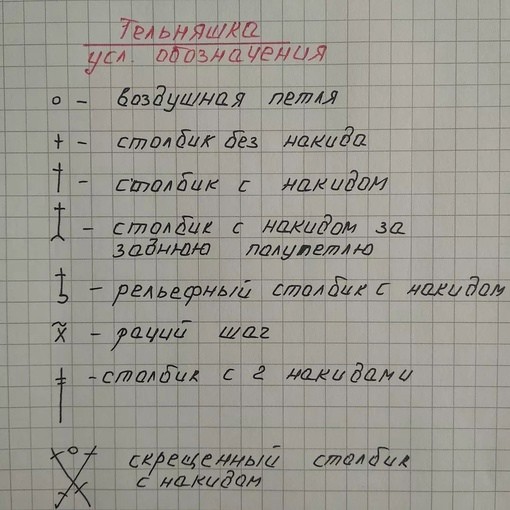 Тельняшка
усл. обозначения
о – воздушная петля
+ – столбик без накида
† – столбик с накидом
– столбик с накидом за
заднюю полупетлю
– рельефный столбик с накидом
x̃ – рачий шаг
ǂ – столбик с 2 накидами
скрещенный столбик
с накидом